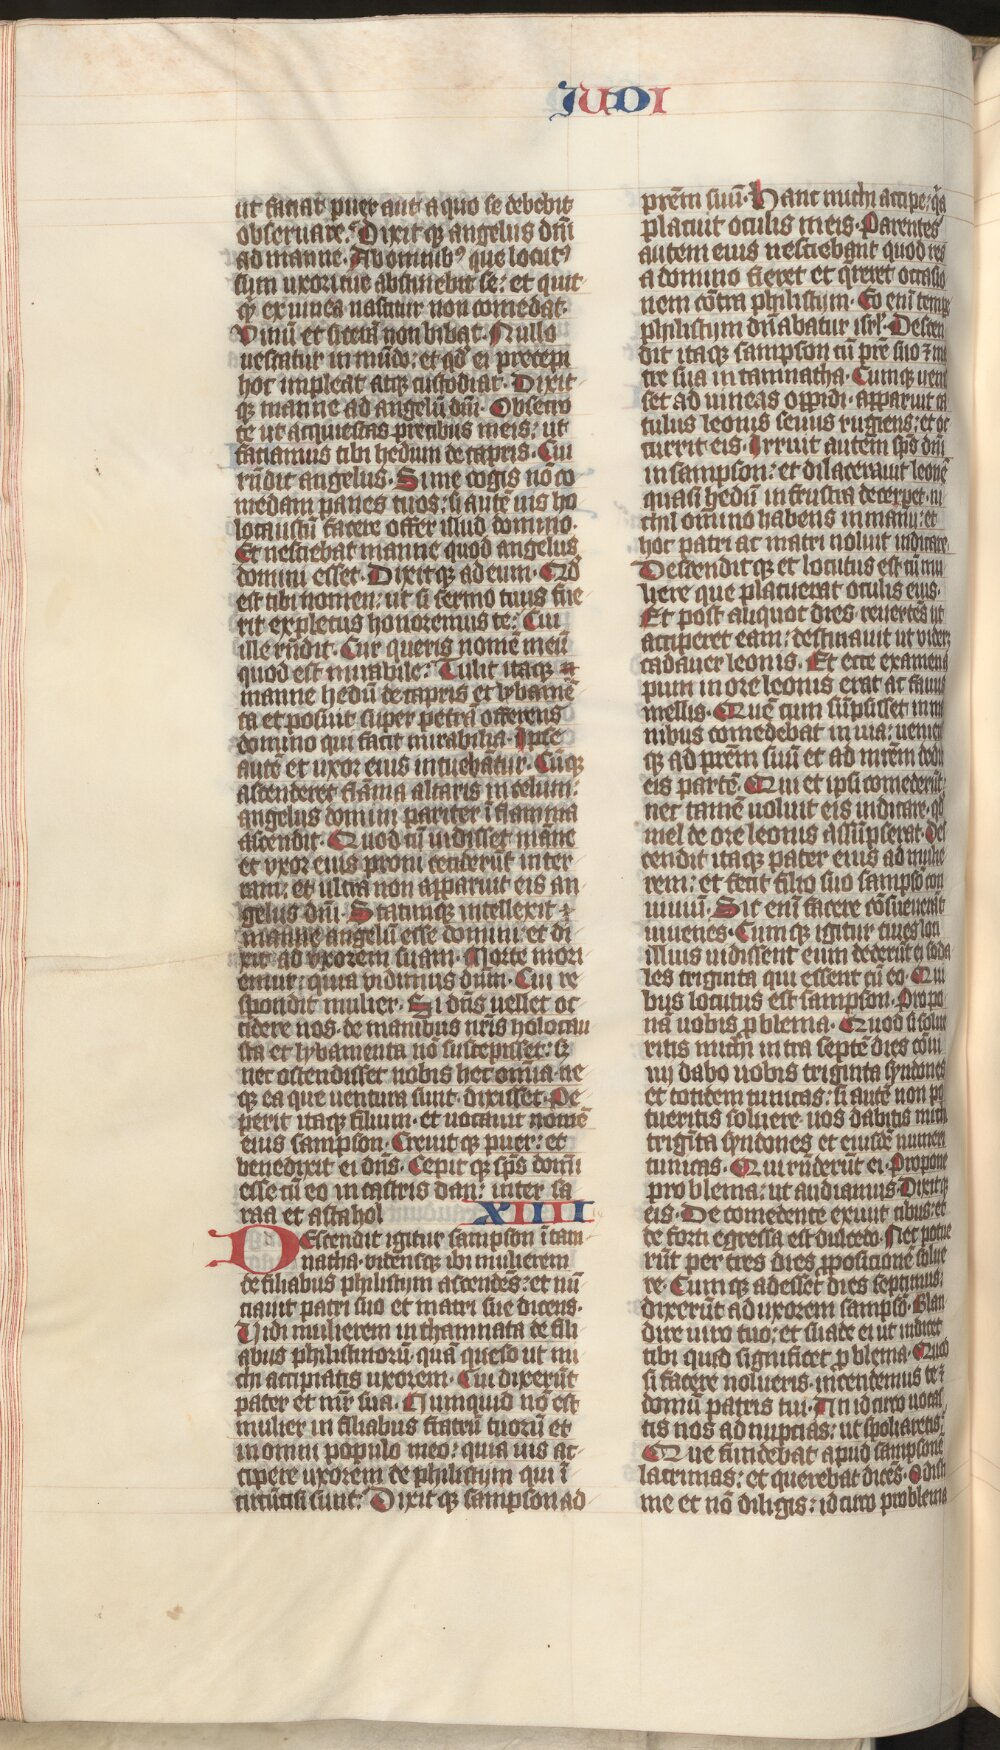 JUDI
ut faciat puer aut a quo se debebit
obseruare. Dixit qꝫ angelus dn̄i
ad manue. Ab omnibꝰ que locutꝰ
sum uxori tue abstinebit se: et quit
qͥd ex uinea nascitur non comedat.
Vinū et sicerā non bibat. Nullo
uescatur in mūdo: et qd̄ ei precepi
hoc impleat atqꝫ custodiat. Dixit
qꝫ manue ad angelū dn̄i. Obsecro
te ut acquiescas precibus meis: ut
faciamus tibi hedum de capris. Cui
rn̄dit angelus. Si me cogis nō co
medam panes tuos: si autē uis ho
locaustū facere offer illud domino.
Et nesciebat manue quod angelus
domini esset. Dixitqꝫ ad eum. Qd̄
est tibi nomen: ut si sermo tuus fue
rit expletus honoremus te: Cui
ille rn̄dit. Cur queris nomē meū
quod est mirabile: Tulit itaqꝫ
manue hedū de capris et lybamē
ta et posuit super petrā offerens
domino qui facit mirabilia. Ipse
autē et uxor eius intuebātur. Cūqꝫ
ascenderet flāma altaris in celum:
angelus domini pariter ī flamma
ascendit. Quod cū uidisset manue
et uxor eius proni ceciderūt in ter
ram: et ultra non apparuit eis an
gelus dn̄i. Statimqꝫ intellexit
manue angelū esse domini: et di
xit ad uxorem suam. Morte mori
emur: quia uidimus dūm. Cui re
spondit mulier. Si dn̄s uellet oc
cidere nos. de manibus nr̄is holocau
sta et lybamenta nō suscepisset: sꝫ
nec ostendisset nobis hec om̄ia. ne
qꝫ ea que uentura sunt. dixisset. Pe
perit itaqꝫ filium. et uocauit nomē
eius sampson. Creuit qꝫ puer: et
benedixit ei dn̄s. Cepit qꝫ sp̄s domī
esse cū eo in castris dan: inter sa
raa et astahol XIIII
Descendit igitur sampson ī tam
natha. uidensqꝫ ibi mulierem
de filiabus philistijm ascendēs: et nū
ciauit patri suo et matri sue dicens.
Vidi mulierem in thamnata de fili
abus philistinorū. quā queso ut mi
chi accipiatis uxorem. Cui dixerūt
pater et mr̄ sua. Numquid nō est
mulier in filiabus fratrū tuorū et
in omni populo meo: quia uis ac
cipere uxorem de philistijm qui ī
circūcisi sunt: Dixit qꝫ sampson ad
prēm suū. Hanc michi accipe: qͥa
placuit oculis meis. Parentes
autem eius nesciebant quod res
a domino fieret et qͥreret occasio
nem cōtra philistijm. Eo enī tempe
philistijm dn̄abatur isrl̄. Descen
dit itaqꝫ sampson cū prē suo ⁊ ma
tre sua in tamnatha. Cumqꝫ uenis
set ad uineas oppidi. apparuit ca
tulus leonis seuus rugiens: et oc
currit eis. Irruit autem sp̄s dn̄i
in sampson: et dilacerauit leonē
quasi hedū in frustra decerpet. ni
chil omīno habens in manu: et
hoc patri ac matri noluit indicare.
Descendit qꝫ et locutus est cū mu
liere que placuerat oculis eius.
Et post aliquot dies. reuertēs ut
acciperet eam: declinauit ut videret
cadauer leonis. Et ecce examen a
pum in ore leonis erat ac fauus
mellis. Quē cum sūpsisset in ma
nibus comedebat in uia: uenien
qꝫ ad prēm suū et ad mrēm dedit
eis partē. Qui et ipsi comederūt:
nec tamē uoluit eis indicare. qd̄
mel de ore leonis assūpserat. Des
cendit itaqꝫ pater eius ad mulie
rem: et fecit filio suo sampso con
uiuiū. Sic enī facere cōsueuerāt
iuuenes. Cum qꝫ igitur ciues loci
illius uidissent eum dederūt ei soda
les triginta qui essent cū eo. Qui
bus locutus est sampson. Propo
nā uobis ꝓblema. Quod si solue
ritis michi intra septē dies cōui
uij dabo uobis triginta syndones
et totidem tunicas: si autē non po
tueritis soluere. uos dabitis michi
trigīta syndones et eiusdē numeri
tunicas. Qui rn̄derūt ei. Propone
problema: ut audiamus. Dixitqꝫ
eis. De comedente exiuit cibus: et
de forti egressa est dulcedo. Nec potue
rūt per tres dies ꝓpositionē solue
re. Cum qꝫ adesset dies septimus:
dixerūt ad uxorem sampsō. Blan
dire uiro tuo: et suade ei ut indicet
tibi quid significet ꝓblema. Quod
si facere nolueris. incendemus te ⁊
domū patris tui. An idcirco uocas
tis nos ad nuptias: ut spoliaretis:
Que fundebat apud sampsonē
lacrimas: et querebat dicēs. Odisti
me et nō diligis: idcirco problema